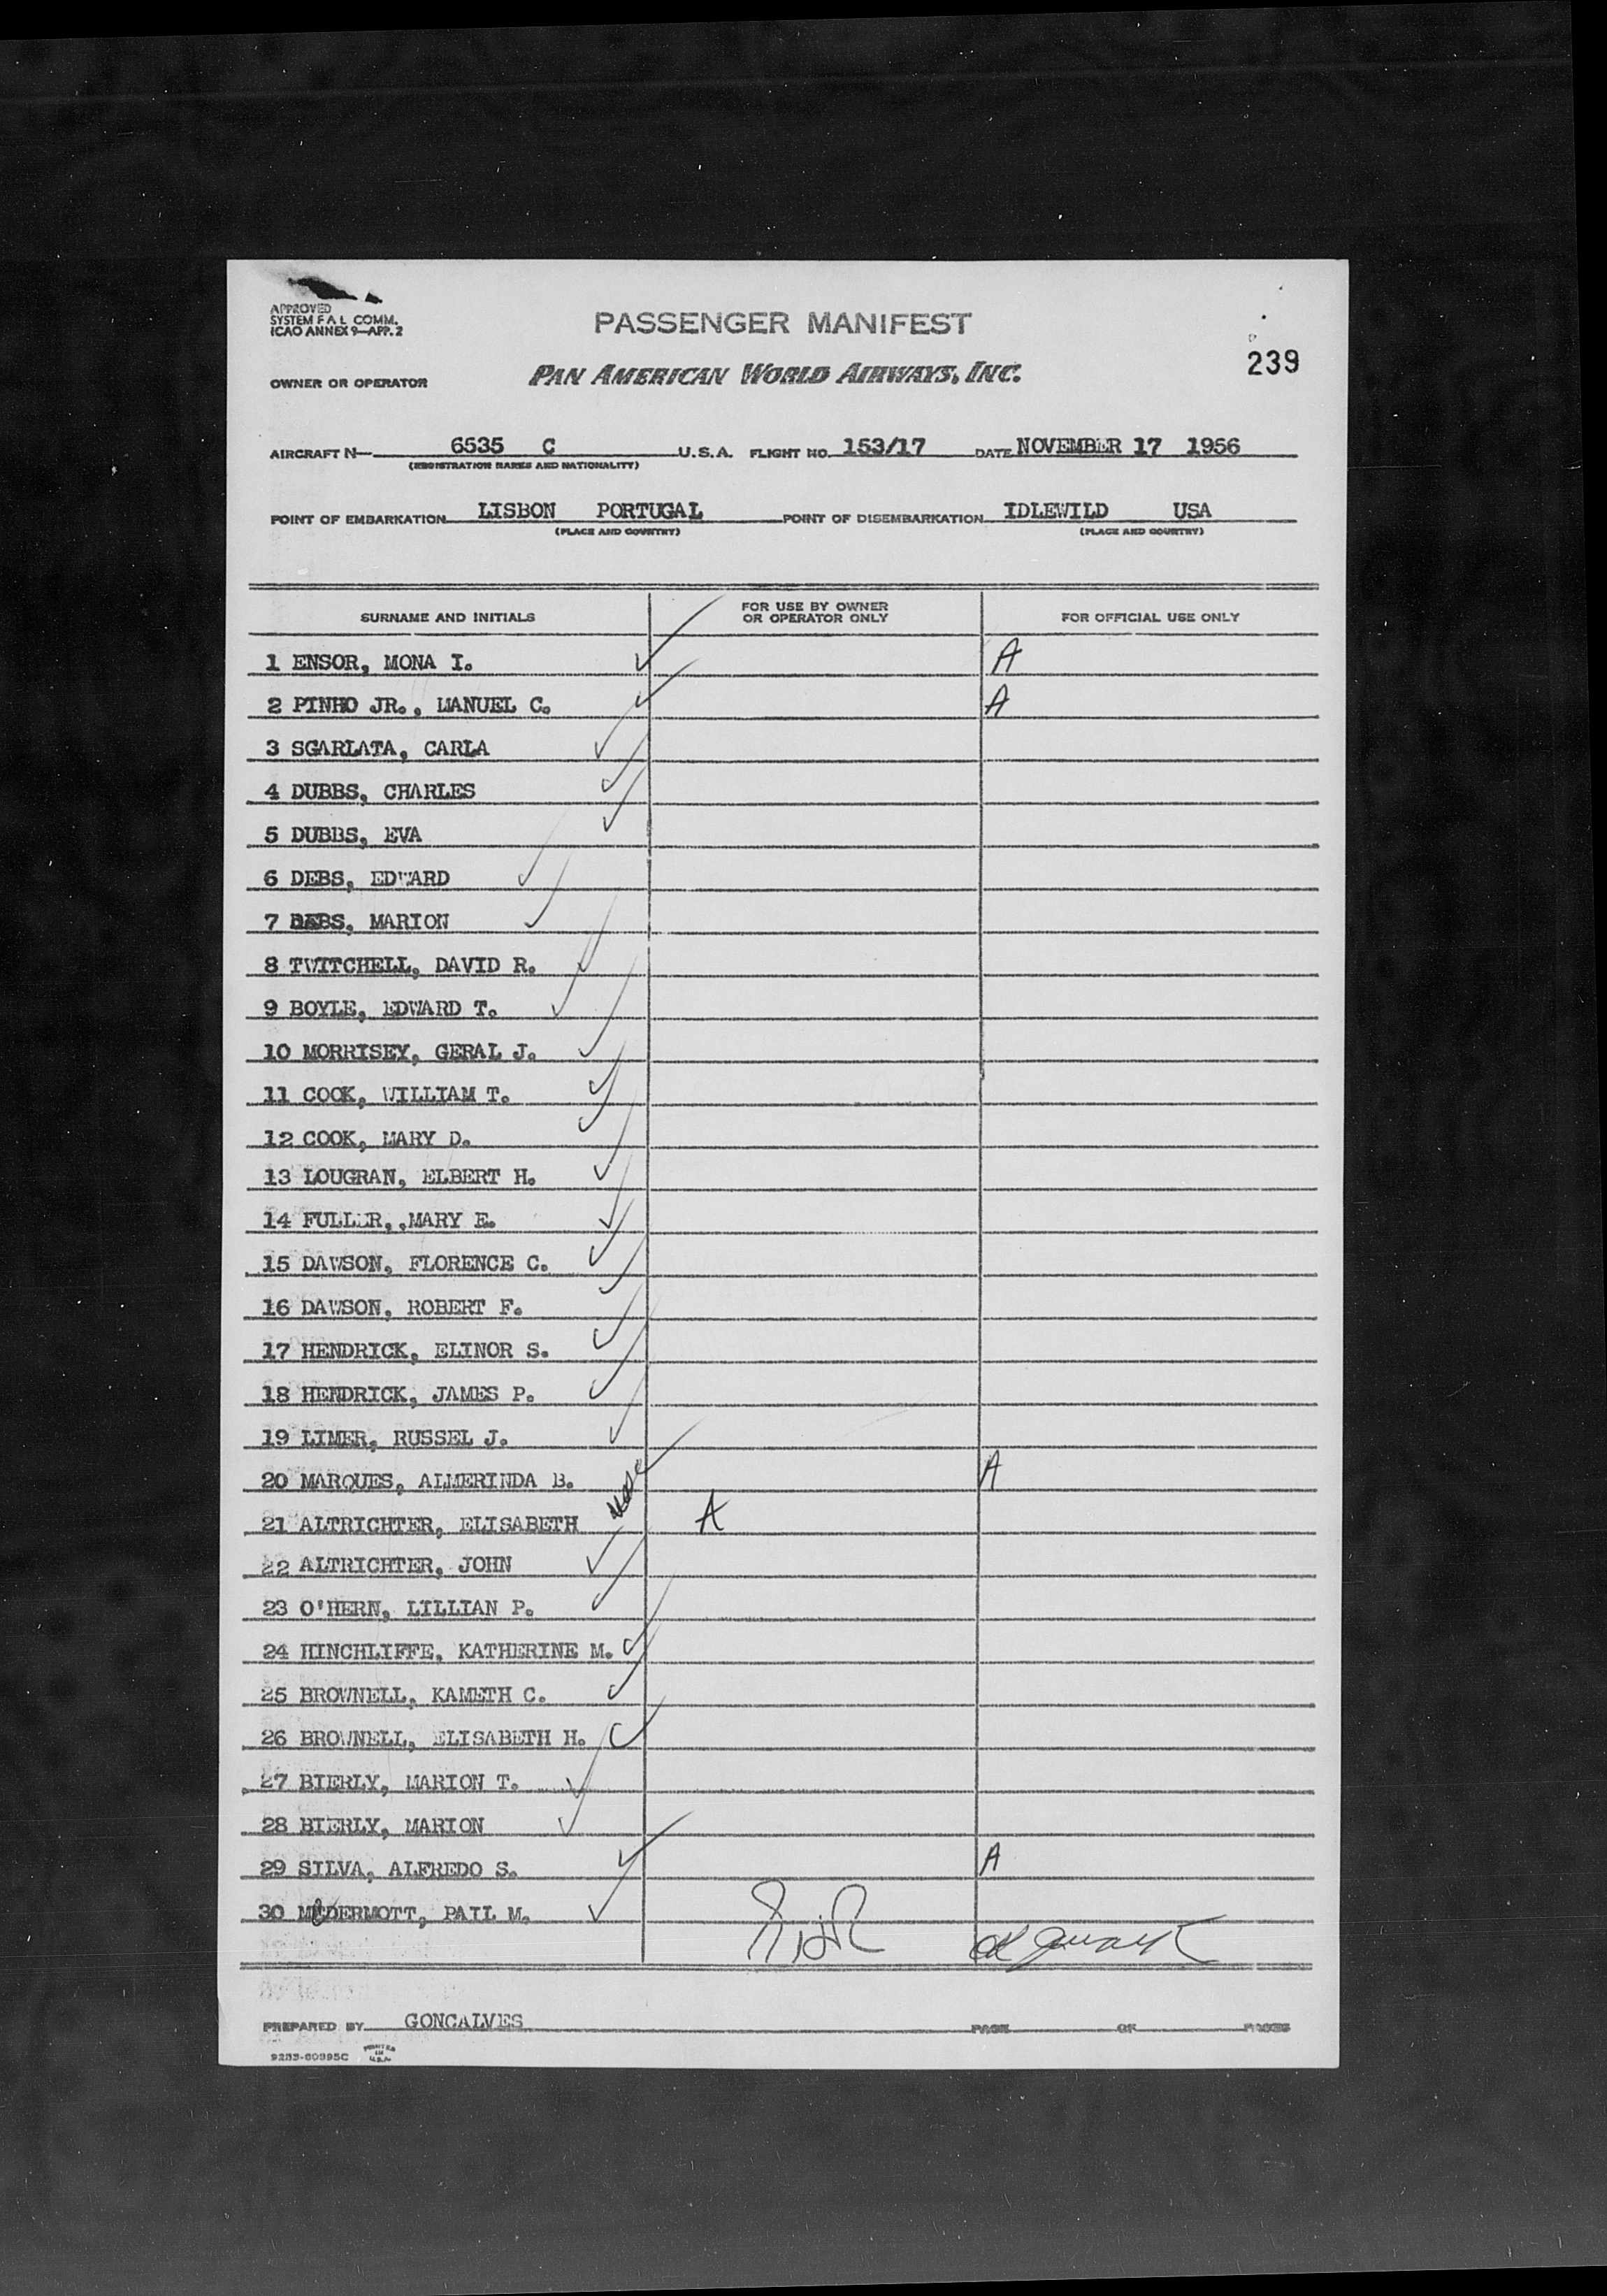 APPROVED
SYSTEM F A L COMM.
ICAO ANNEX 9—APP. 2
PASSENGER MANIFEST
239
OWNER OR OPERATOR PAN AMERICAN WORLD AIRWAYS, INC.
AIRCRAFT N— 6535 C U.S.A. FLIGHT NO. 153/17 DATE NOVEMBER 17 1956
(REGISTRATION MARKS AND NATIONALITY)
POINT OF EMBARKATION LISBON PORTUGAL POINT OF DISEMBARKATION IDLEWILD USA
(PLACE AND COUNTRY) (PLACE AND COUNTRY)
SURNAME AND INITIALS FOR USE BY OWNER OR OPERATOR ONLY FOR OFFICIAL USE ONLY
1 ENSOR, MONA I. A
2 PINHO JR., MANUEL C. A
3 SGARLATA, CARLA
4 DUBBS, CHARLES
5 DUBBS, EVA
6 DEBS, EDWARD
7 DEBS, MARION
8 TWITCHELL, DAVID R.
9 BOYLE, EDWARD T.
10 MORRISEY, GERAL J.
11 COOK, WILLIAM T.
12 COOK, MARY D.
13 LOUGRAN, ELBERT H.
14 FULLER, ,MARY E.
15 DAWSON, FLORENCE C.
16 DAWSON, ROBERT F.
17 HENDRICK, ELINOR S.
18 HENDRICK, JAMES P.
19 LIMER, RUSSEL J.
20 MARQUES, ALMERINDA B. A
21 ALTRICHTER, ELISABETH A
22 ALTRICHTER, JOHN
23 O'HERN, LILLIAN P.
24 HINCHLIFFE, KATHERINE M.
25 BROWNELL, KAMETH C.
26 BROWNELL, ELISABETH H.
27 BIERLY, MARION T.
28 BIERLY, MARION
29 SILVA, ALFREDO S. A
30 McDERMOTT, PAIL M.
PREPARED BY GONCALVES PAGE OF PAGES
9233-60995C PRINTED IN U.S.A.